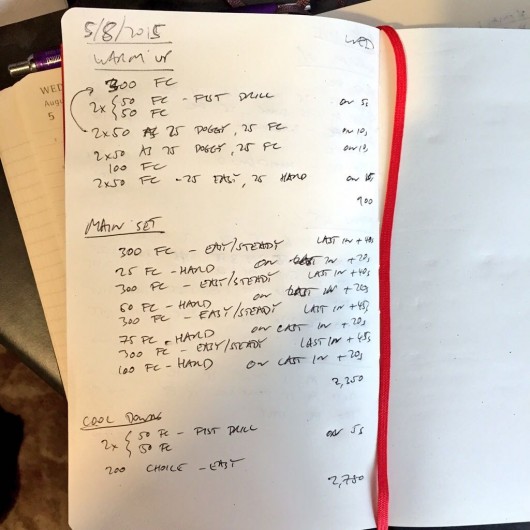 5/8/2015 WED
WARM UP
300 FC
2x { 50 FC - FIST DRILL on 5s
50 FC
2x50 AS 25 DOGGY, 25 FC on 10s
2x50 AS 25 DOGGY, 25 FC on 10s
100 FC
2x50 FC - 25 EASY, 25 HARD on
900
MAIN SET
300 FC - EASY/STEADY LAST IN + 40s
25 FC - HARD on LAST IN + 20s
300 FC - EASY/STEADY LAST IN + 40s
50 FC - HARD on LAST IN + 20s
300 FC - EASY/STEADY LAST IN + 45s
75 FC - HARD on LAST IN + 20s
300 FC - EASY/STEADY LAST IN + 45s
100 FC - HARD on LAST IN + 20s
2,350
COOL DOWN
2x { 50 FC - FIST DRILL on 5s
50 FC
200 CHOICE - EASY
2,750
WED
Aug
5